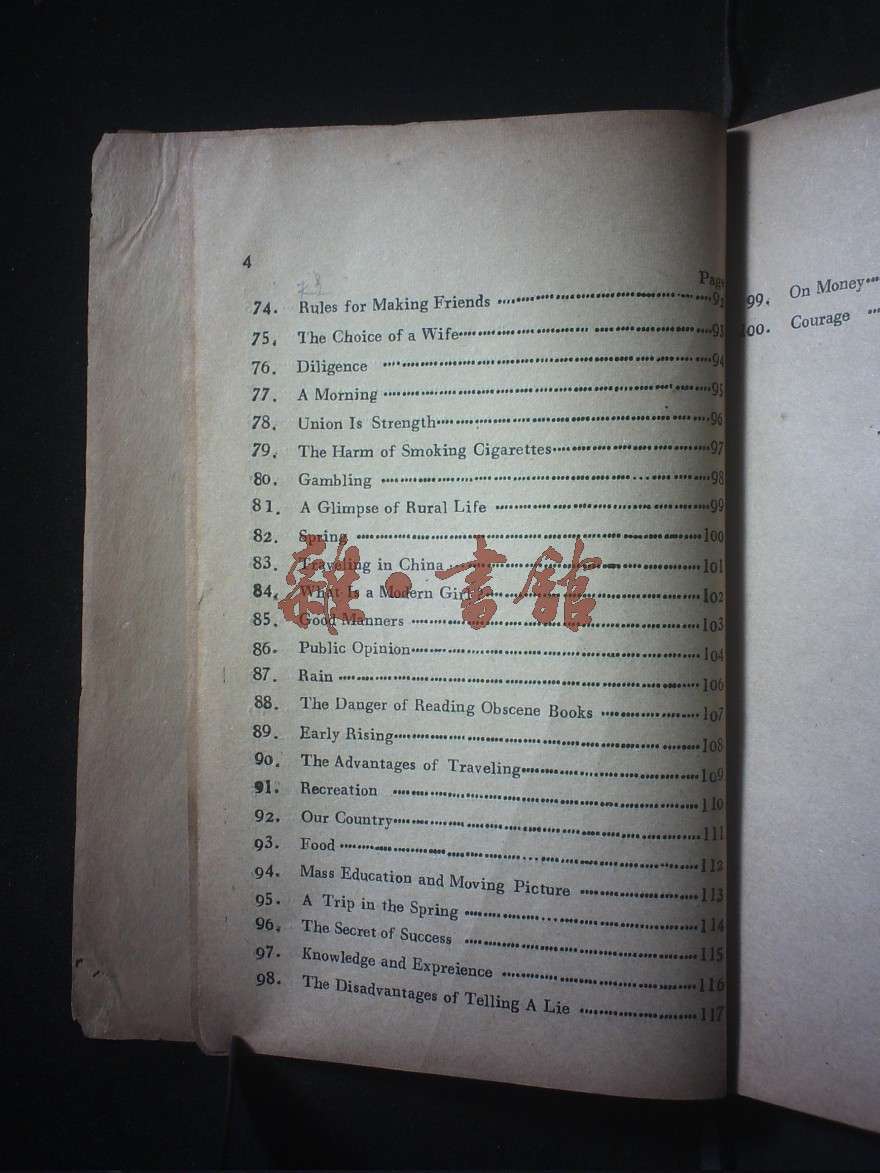 4
Page
74. Rules for Making Friends 92
75. The Choice of a Wife 93
76. Diligence 94
77. A Morning 95
78. Union Is Strength 96
79. The Harm of Smoking Cigarettes 97
80. Gambling 98
81. A Glimpse of Rural Life 99
82. Spring 100
83. Traveling in China 101
84. What Is a Modern Girl? 102
85. Good Manners 103
86. Public Opinion 104
87. Rain 106
88. The Danger of Reading Obscene Books 107
89. Early Rising 108
90. The Advantages of Traveling 109
91. Recreation 110
92. Our Country 111
93. Food 112
94. Mass Education and Moving Picture 113
95. A Trip in the Spring 114
96. The Secret of Success 115
97. Knowledge and Expreience 116
98. The Disadvantages of Telling A Lie 117
雜·書館
99. On Money
100. Courage